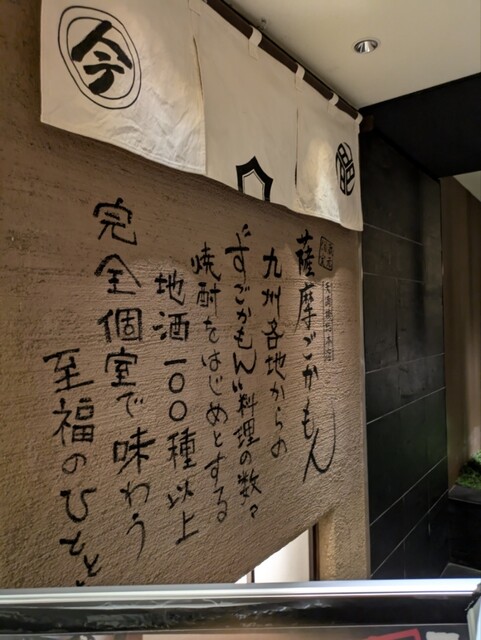 今
薩摩ごかもん
九州各地からの
"すごかもん"料理の数々
焼酎をはじめとする
地酒一〇〇種以上
完全個室で味わう
至福のひととき